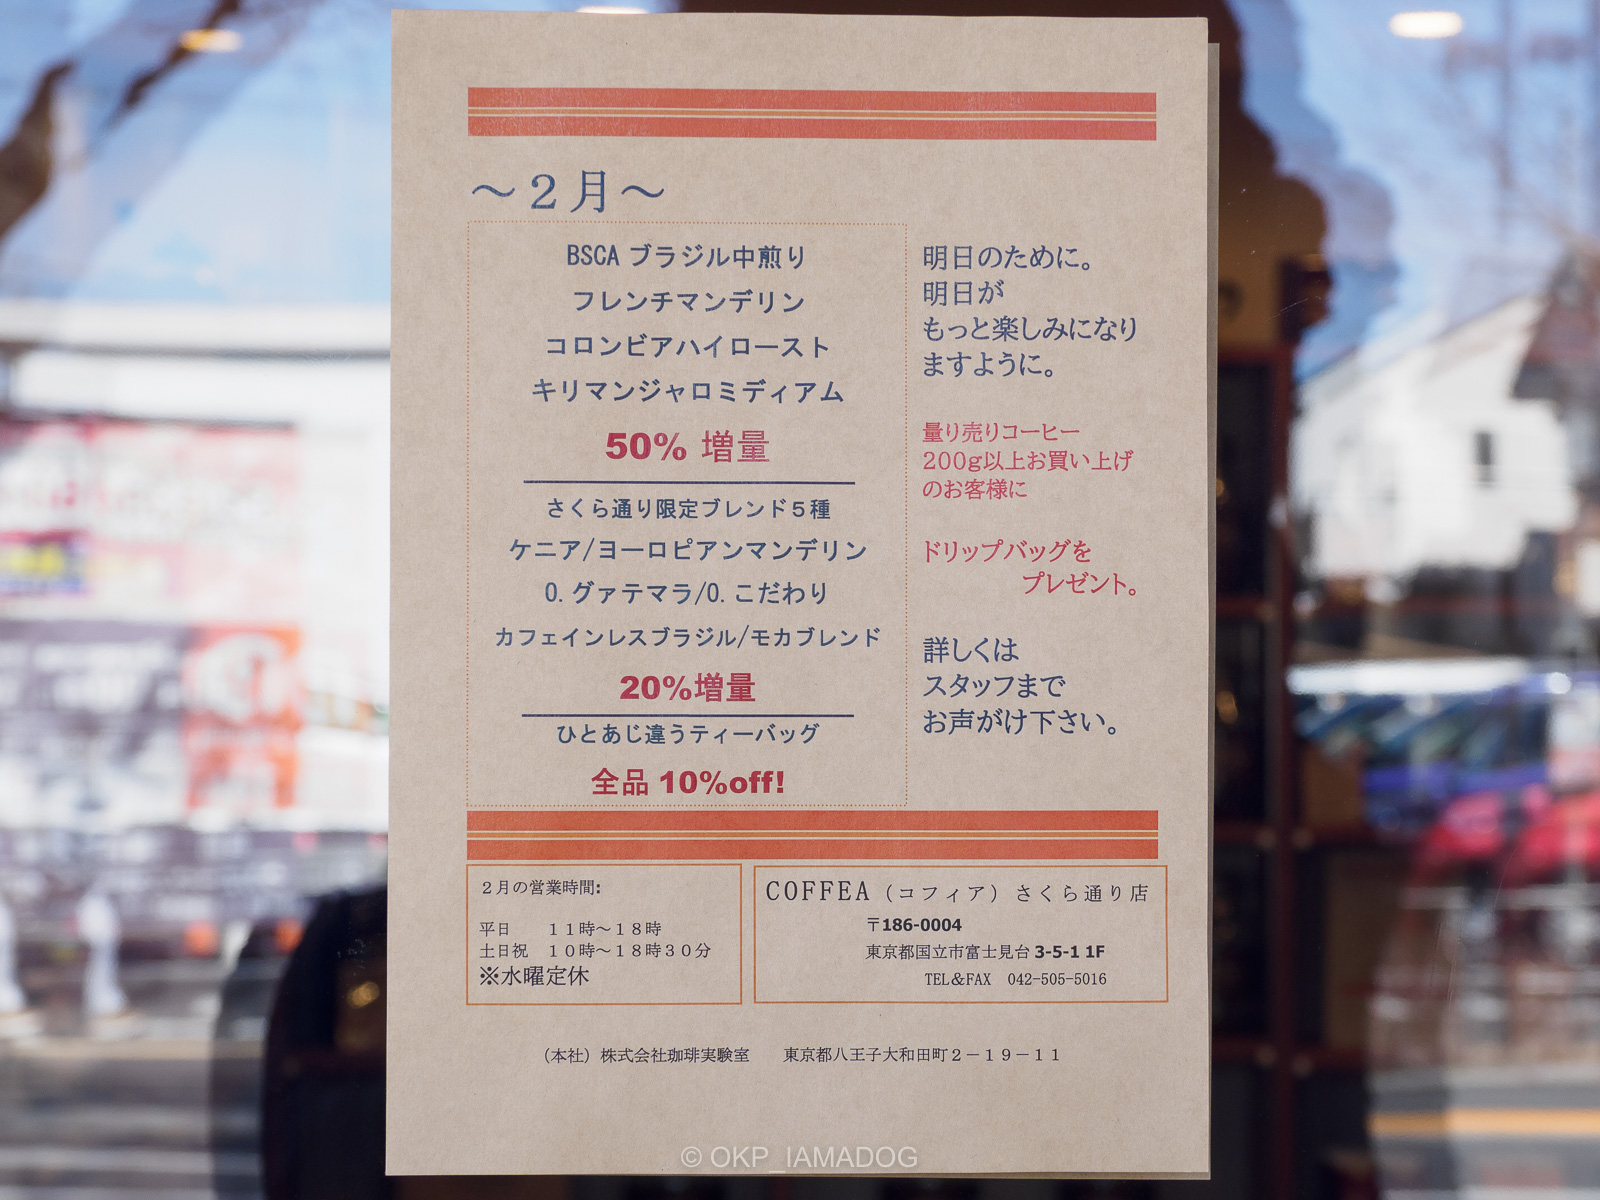 ～２月～
BSCA ブラジル中煎り
フレンチマンデリン
コロンビアハイロースト
キリマンジャロミディアム
50% 増量
さくら通り限定ブレンド５種
ケニア/ヨーロピアンマンデリン
O. グァテマラ/O. こだわり
カフェインレスブラジル/モカブレンド
20%増量
ひとあじ違うティーバッグ
全品 10%off!
明日のために。
明日が
もっと楽しみになり
ますように。
量り売りコーヒー
200g以上お買い上げ
のお客様に
ドリップバッグを
プレゼント。
詳しくは
スタッフまで
お声がけ下さい。
２月の営業時間:
平日　１１時～１８時
土日祝　１０時～１８時３０分
※水曜定休
COFFEA（コフィア）さくら通り店
〒186-0004
東京都国立市富士見台 3-5-1 1F
TEL&FAX　042-505-5016
（本社）株式会社珈琲実験室　東京都八王子大和田町２－１９－１１
© OKP_IAMADOG